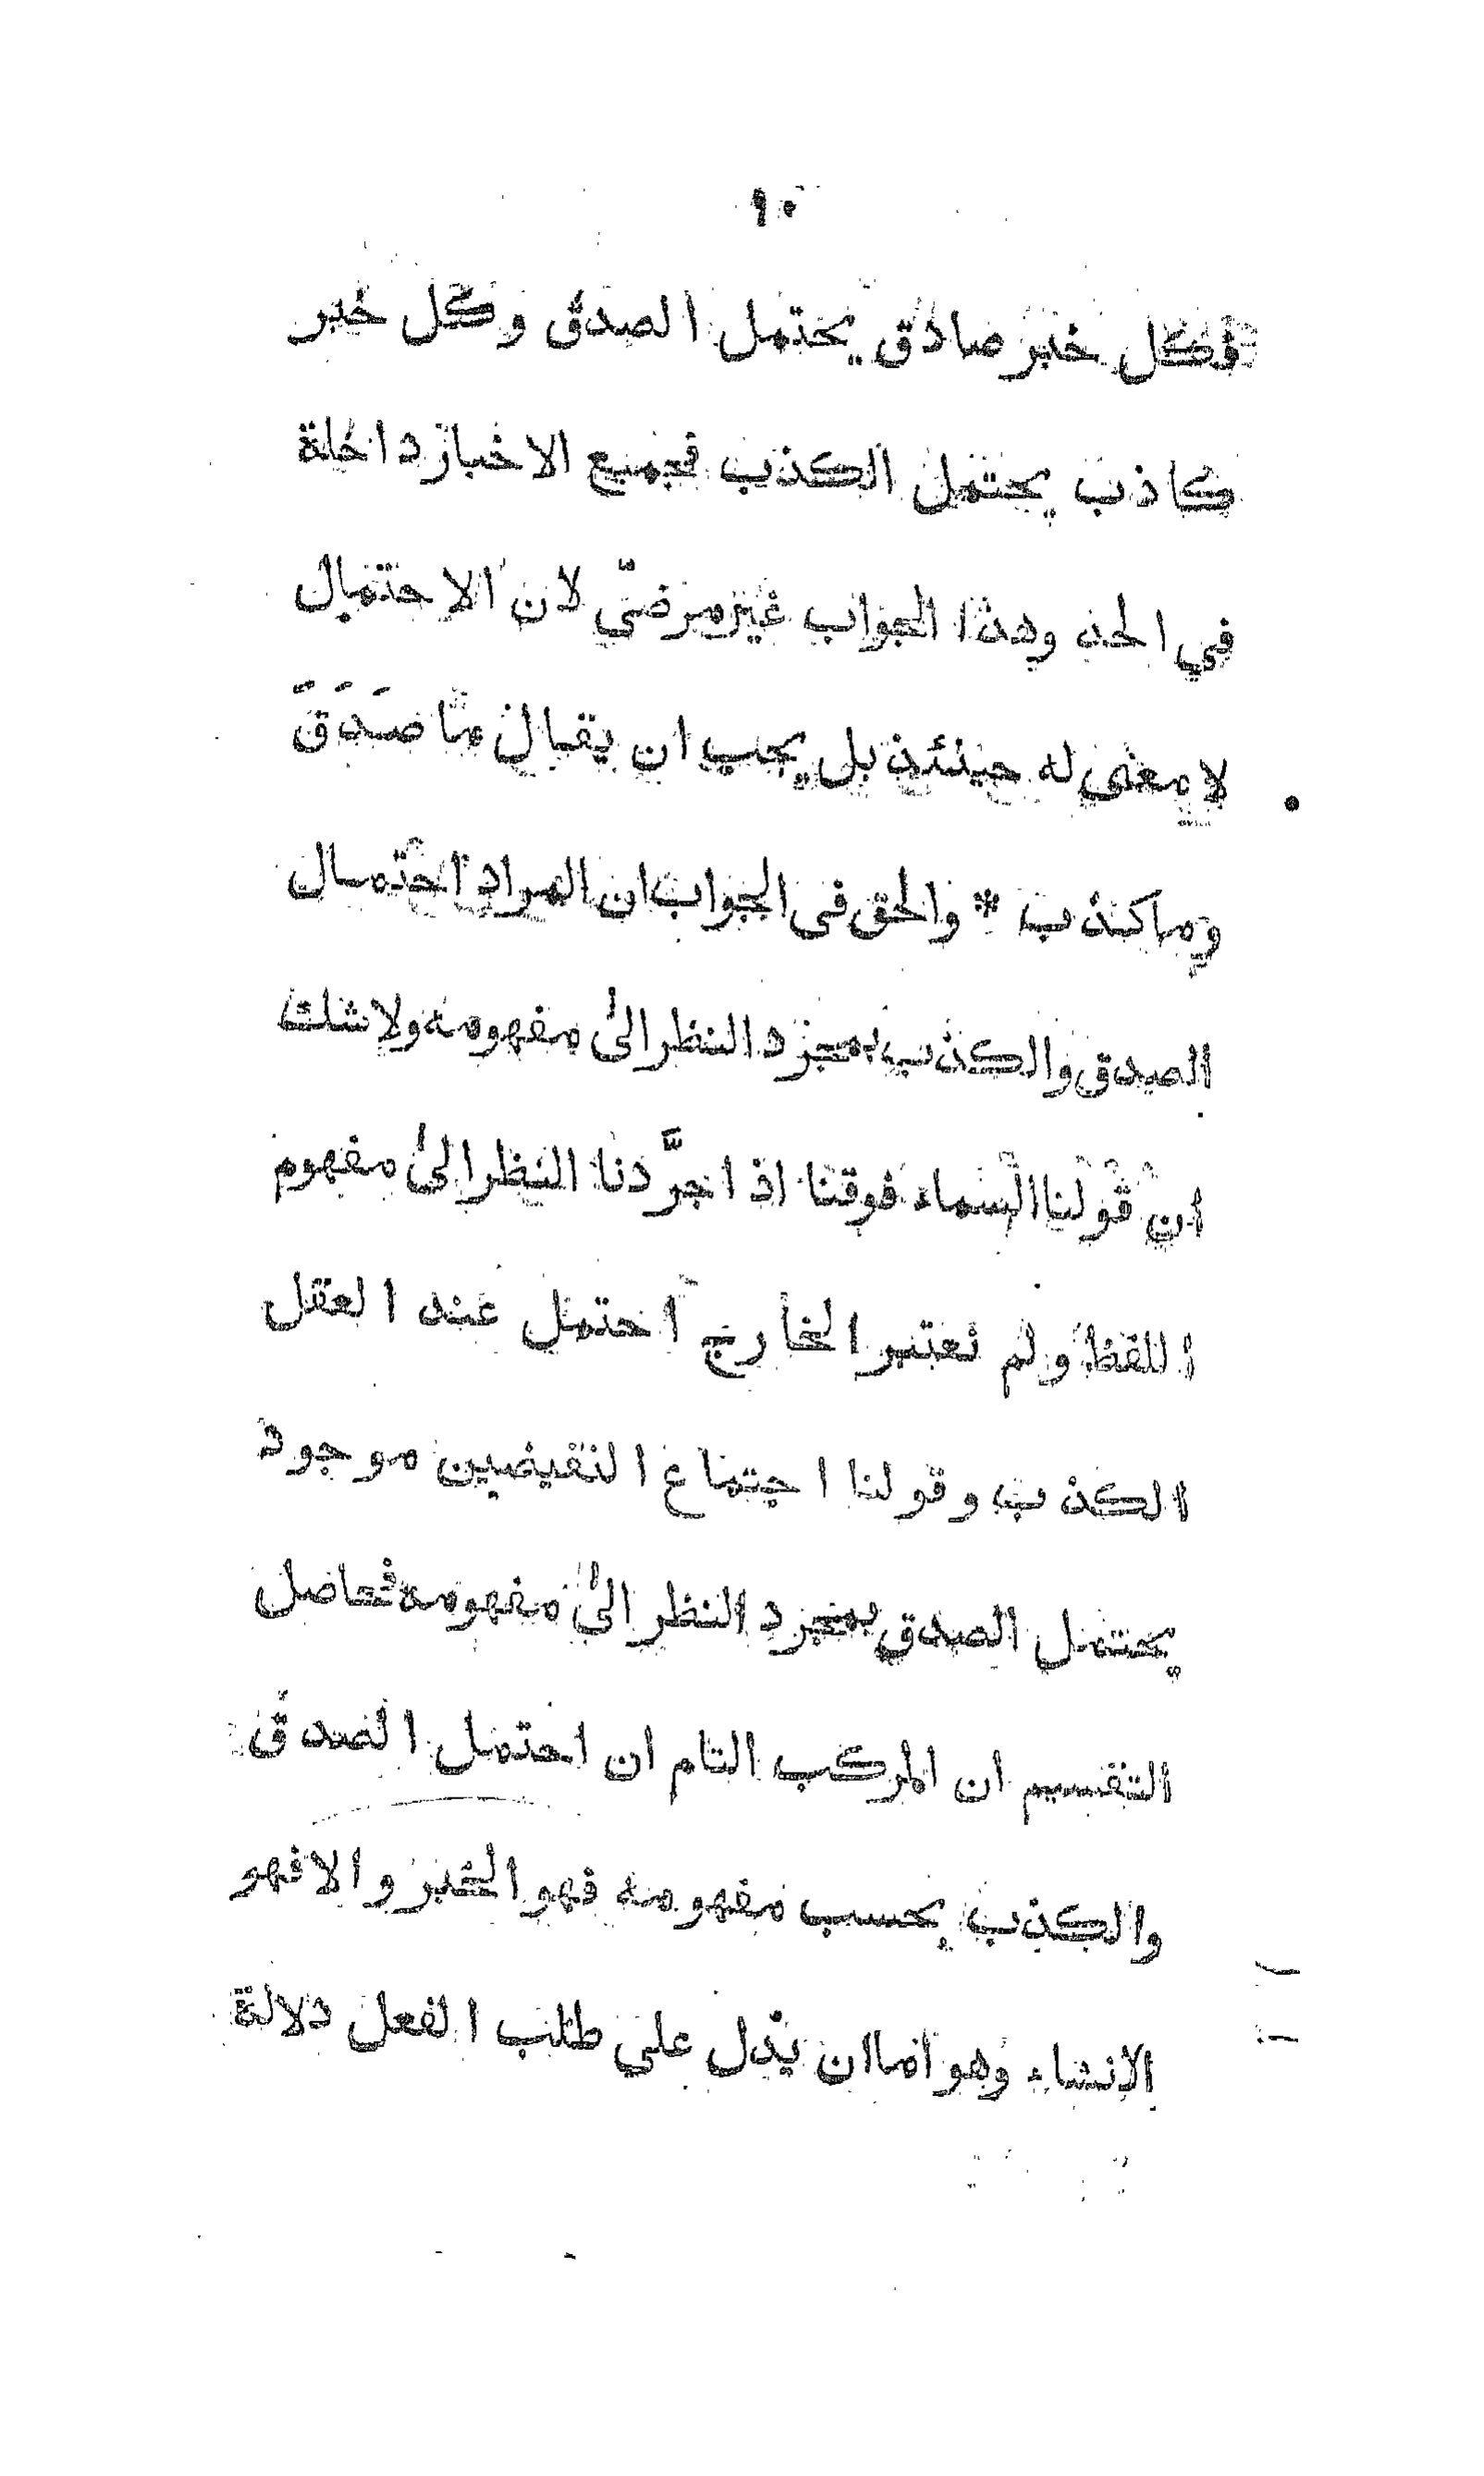 ٩٠
فكل خبر صادق يحتمل الصدق وكل خبر
كاذب يحتمل الكذب فجميع الاخبار داخلة
في الحد وهذا الجواب غير مرضىّ لان الاحتمال
لا معنى له حينئذ بل يجب ان يقال ما صَدَقَ
وما كذب * والحق فى الجواب ان المراد احتمال
الصدق والكذب بمجرد النظر الىٰ مفهومه ولا شك
ان قولنا السماء فوقنا اذا جرَّدنا النظر الىٰ مفهوم
اللفظ ولم نعتبر الخارج احتمل عند العقل
الكذب وقولنا اجتماع النقيضين موجود
يحتمل الصدق بمجرد النظر الىٰ مفهومه فحاصل
التقسيم ان المركب التام ان احتمل الصدق
والكذب بحسب مفهومه فهو الخبر والا فهو
الانشاء وهو اما ان يدل علي طلب الفعل دلالة